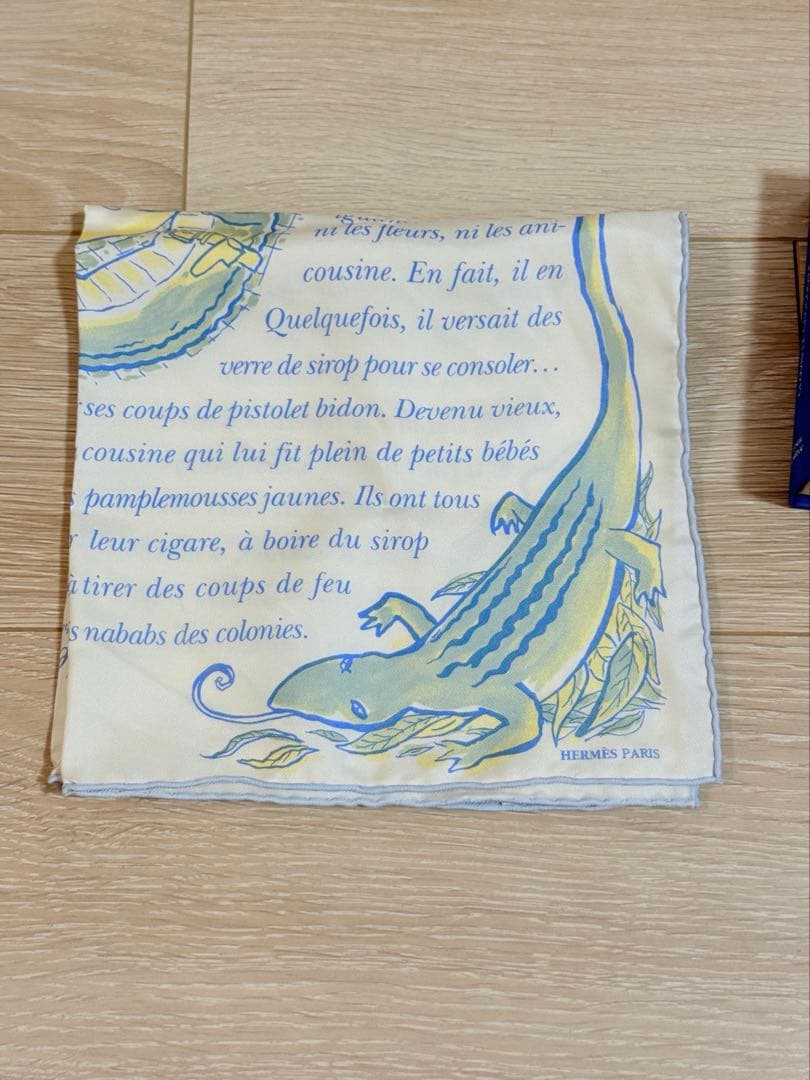 ni les fleurs, ni les ani-
cousine. En fait, il en
Quelquefois, il versait des
verre de sirop pour se consoler...
ses coups de pistolet bidon. Devenu vieux,
cousine qui lui fit plein de petits bébés
pamplemousses jaunes. Ils ont tous
r leur cigare, à boire du sirop
à tirer des coups de feu
s nababs des colonies.
HERMÈS PARIS